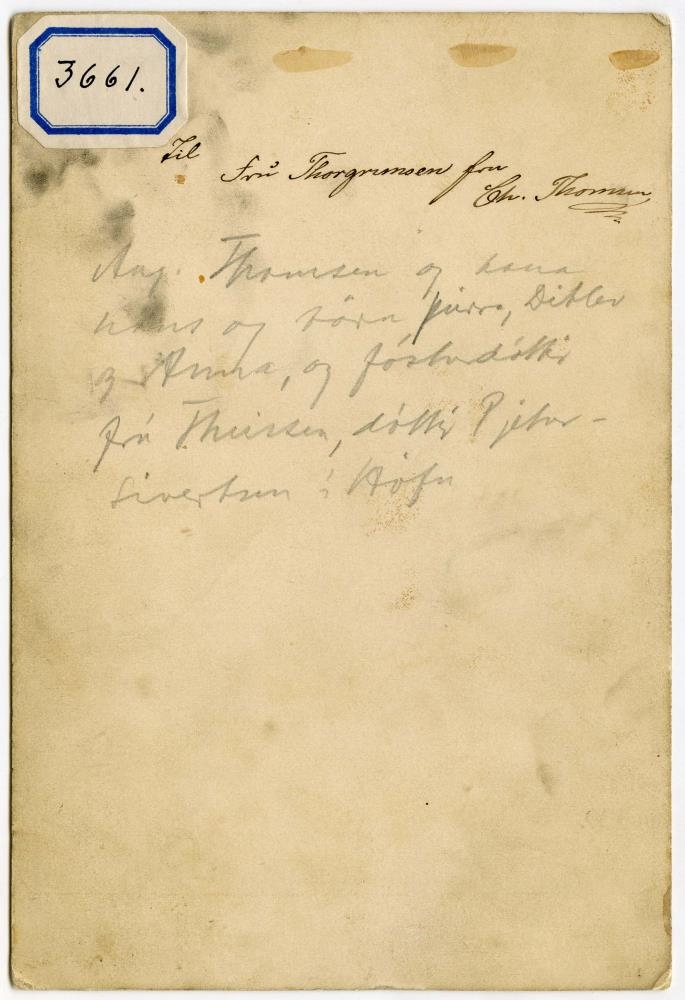 3661.
Til
Frú Thorgrimsen frá
Ch. Thomsen
Aug. Thomsen og kona
hans og börn Þurra, Ditlev
og Anna, og fósturdóttir
frú Thiissen, dóttir Pjetur-
Sivertsen í Höfn